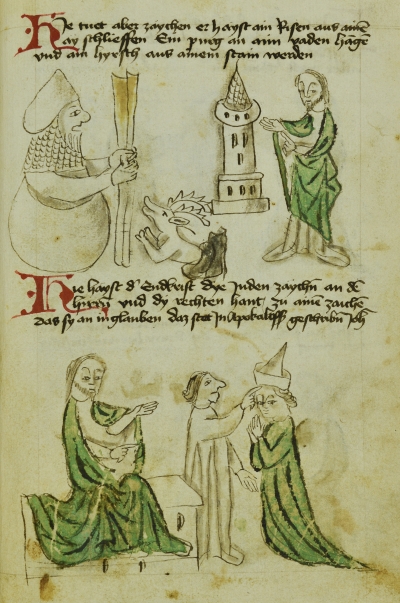 Hie tuet aber zaychen er hayst ain Risen aus aine
ay schlieffen Ein purg an aim vaden hange
vnd ain hyrsch aus ainem stain werden
Hie hayst d Endkrist dye Juden zaychn an d
hirn vnd dy rechten hant zu aine zaiche
das sy an in glauben daz stet In Apokalipss geschribn Joh